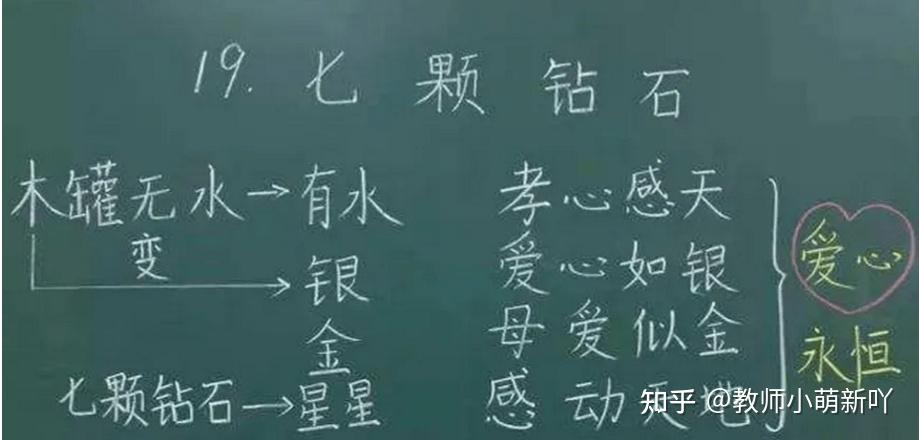 19. 七颗钻石
木罐无水→有水 孝心感天
变
银 爱心如银
爱心
金 母爱似金
永恒
七颗钻石→星星 感动天地
知乎 @教师小萌新吖